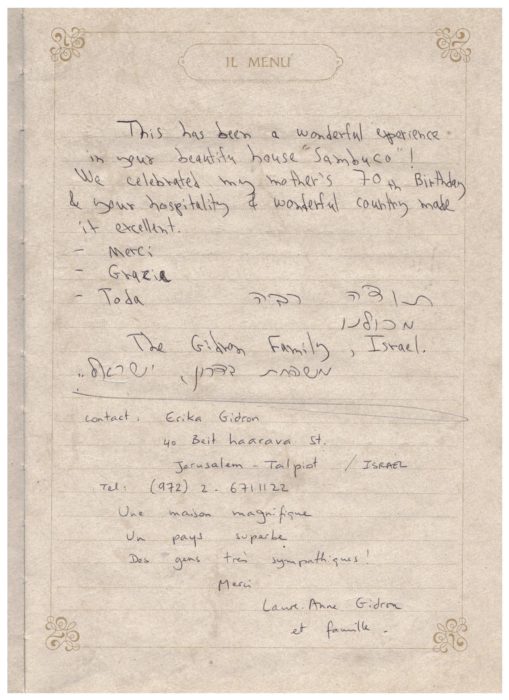 IL MENU
This has been a wonderful experience
in your beautifu house "Sambuco"!
We celebrated my mother's 70th Birthday
& your hospitality & wonderful country made
it excellent.
- Merci
- Grazie
- Toda תודה רבה
מכולנו
The Gidron Family, Israel.
משפחת גדרון, ישראל.
contact: Erika Gidron
40 Beit haarava St.
Jerusalem - Talpiot / ISRAEL
Tel: (972) 2 - 6711122
Une maison magnifique
Un pays superbe
Des gens très sympathiques!
Merci
Laure-Anne Gidron
et famille.